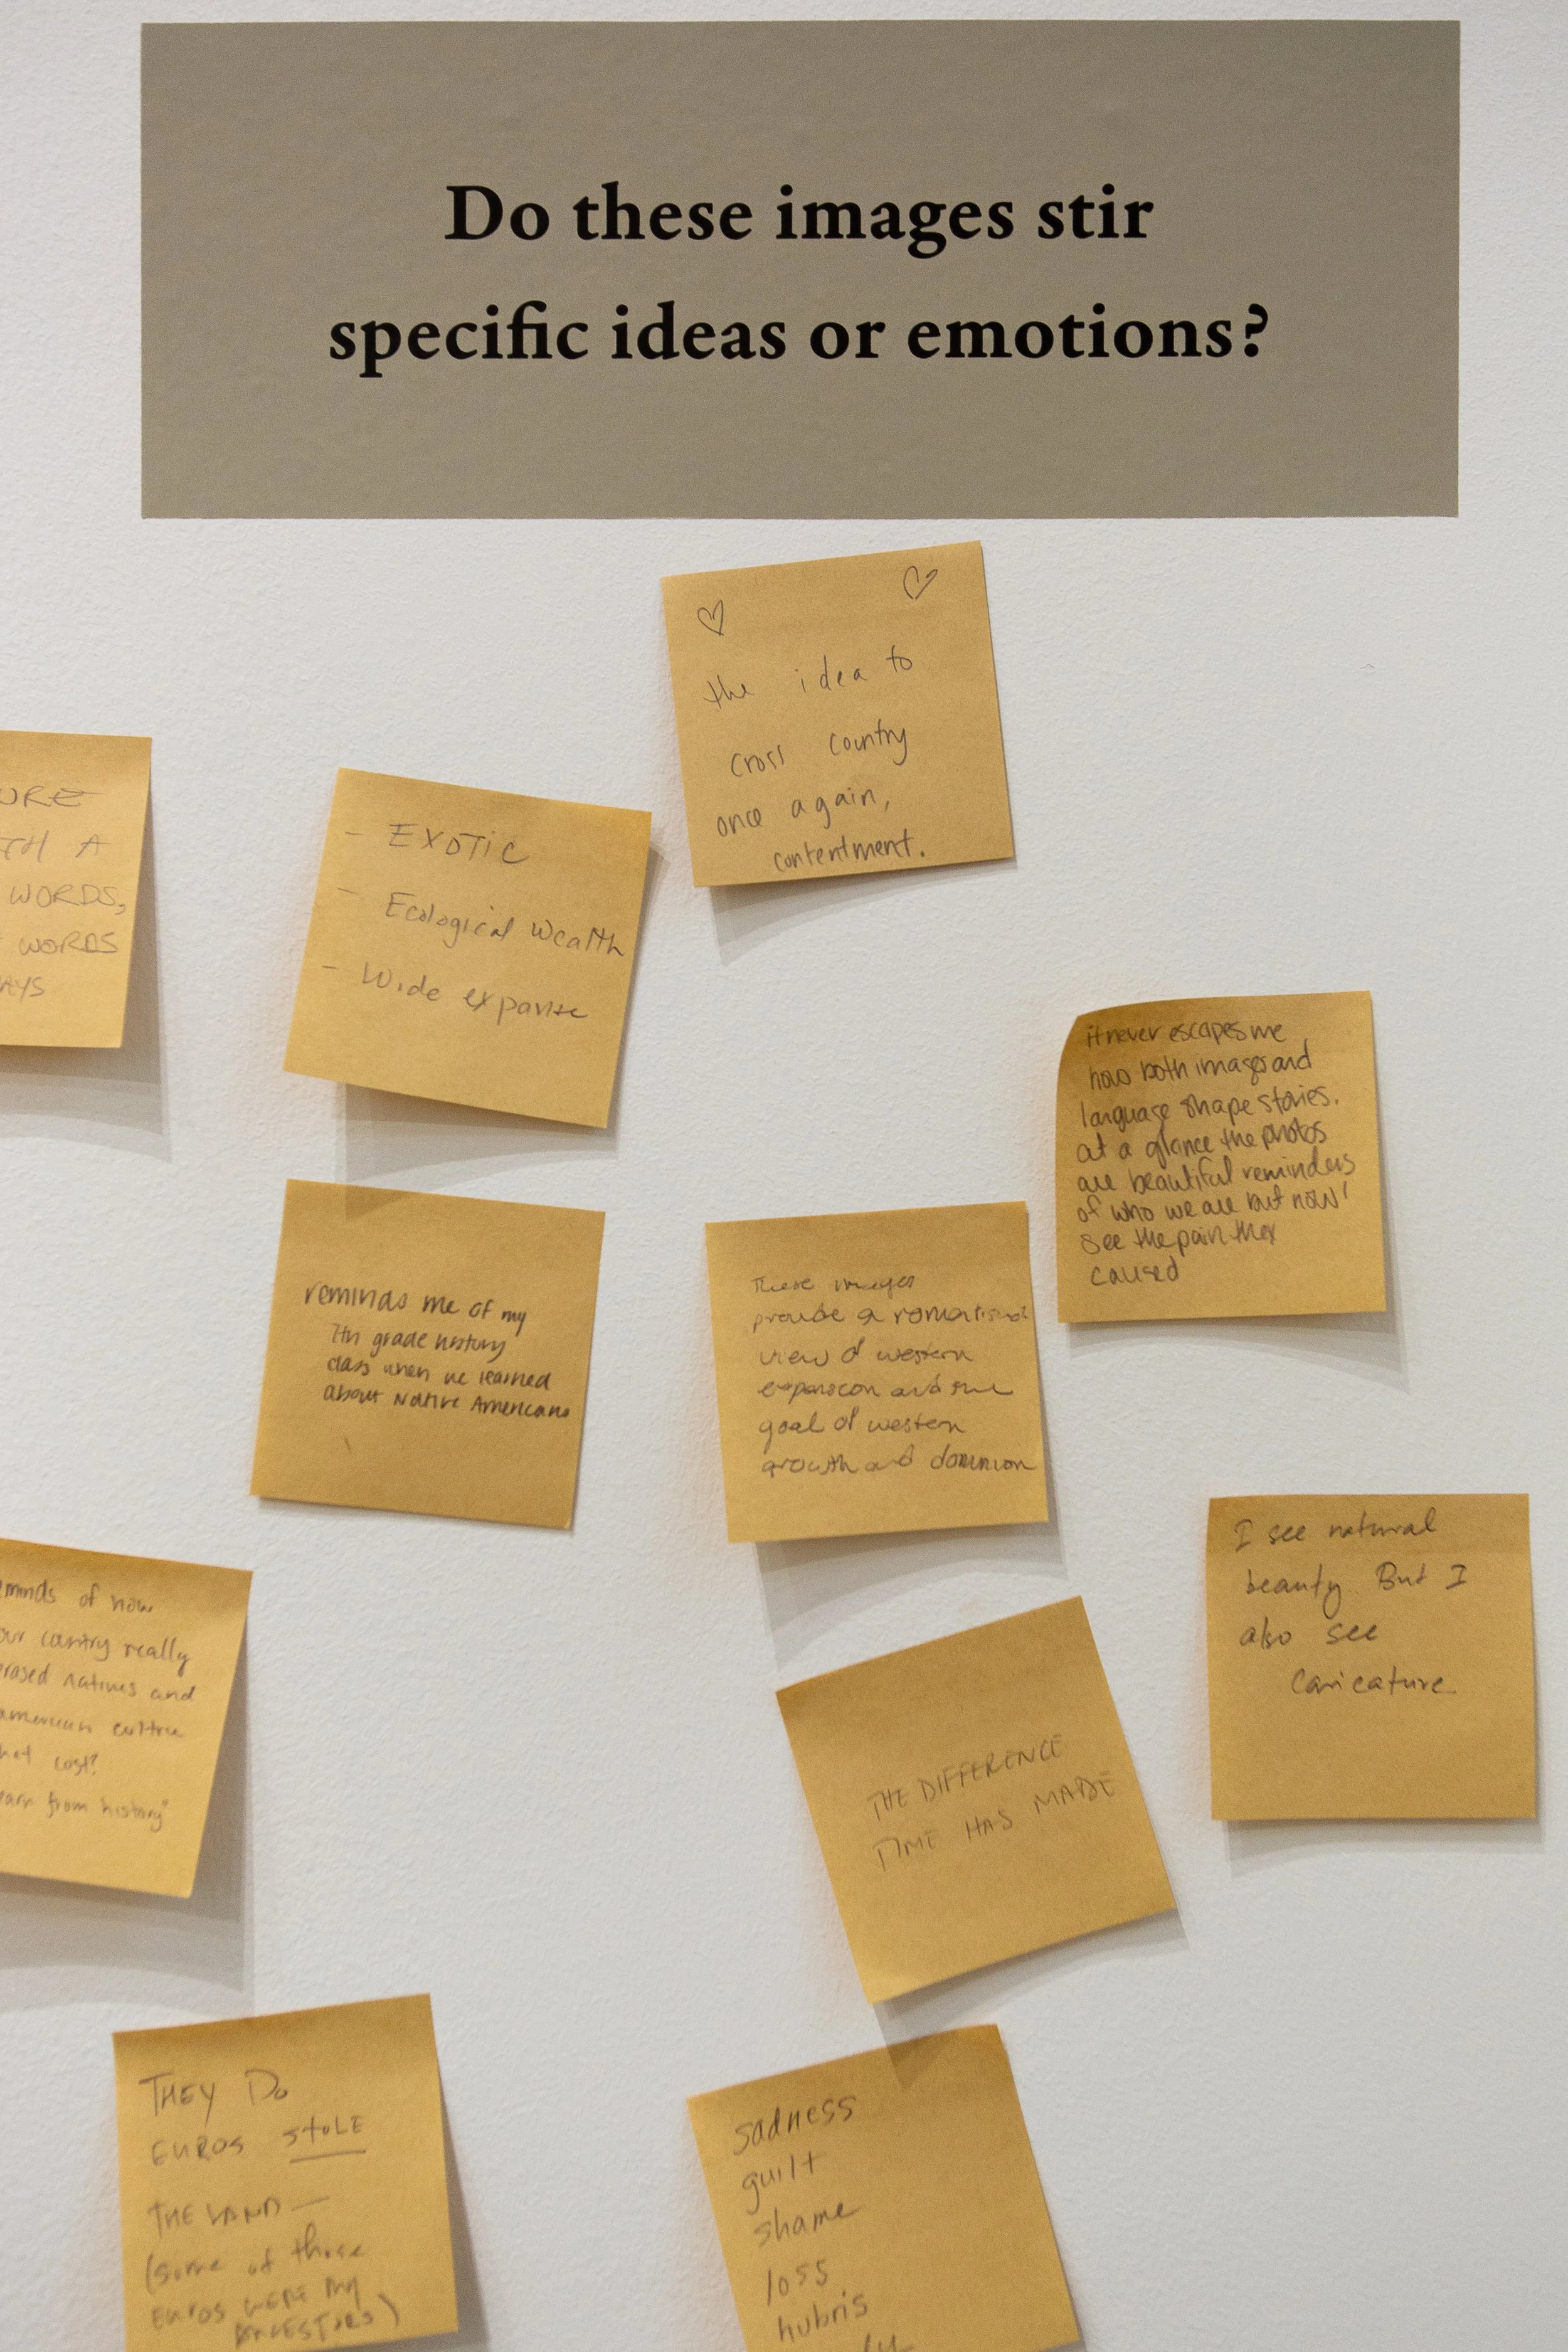 Do these images stir
specific ideas or emotions?
the idea to
cross country
once again,
contentment.
URE
TH A
WORDS,
WORDS
AYS
- EXOTIC
- Ecological Wealth
- Wide expanse
it never escapes me
how both images and
language shape stories.
at a glance the photos
are beautiful reminders
of who we are but now I
see the pain they
caused
reminds me of my
7th grade history
class when we learned
about Native Americans
These images
provide a romanticized
view of western
expansion and the
goal of western
growth and dominion
I see natural
beauty. But I
also see
caricature.
eminds of how
our country really
rased natives and
american culture
hat cost?
earn from history"
THE DIFFERENCE
TIME HAS MADE
THEY DO
EUROS STOLE
THE LAND —
(some of those
EUROS WERE MY
ANCESTORS)
sadness
guilt
shame
loss
hubris